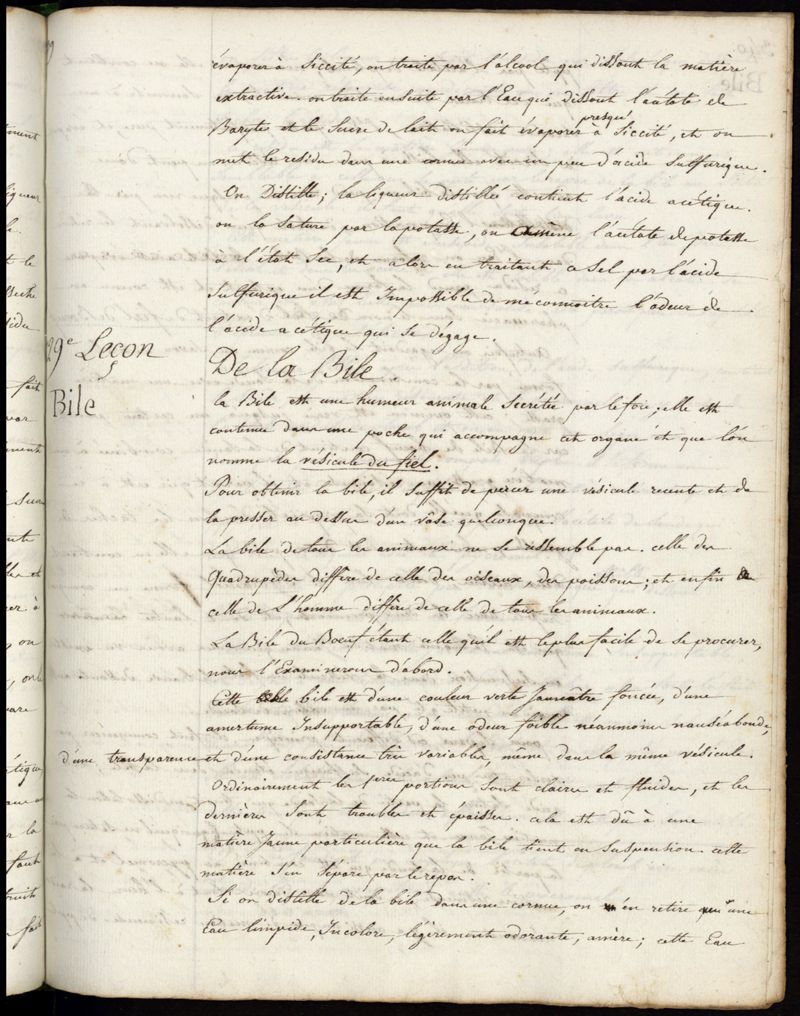 évaporer à Siccité, on traite par l'alcool qui dissout la matière
extractive. on traite ensuite par l'Eau qui dissout l'acétate de
Barytes et le Sucre de lait on fait évaporer presqu' à Siccité, et on
met le residu dans une cornue avec un peu d'acide Sulfurique.
On Distille; la liqueur distillée contient l'acide acétique.
on la sature par la potasse, on amène l'acétate de potasse
à l'état Sec, et alors en traitant ce Sel par l'acide
Sulfurique il est Impossible de méconnoitre l'odeur de
l'acide acétique qui se dégage.
29e Leçon
De la Bile.
Bile
la Bile est une humeur animale Secrétée par le foie; elle est
contenue dans une poche qui accompagne cet organe et que l'on
nomme la vésicule du fiel.
Pour obtenir la bile, il suffit de percer une vésicule recente et de
la presser au dessus d'un vâse quelconque.
La bile de tous les animaux ne se ressemble pas. celle des
Quadrupèdes diffère de celle des oiseaux, des poissons; et enfin
celle de L'homme diffère de celle de tous les animaux.
La Bile du Bœuf étant celle qu'il est le plus facile de se procurer,
nous l'Examinerons d'abord.
Cette bile est d'une couleur verte Jaunâtre foncée, d'une
amertume Insupportable, d'une odeur foible néanmoins nauséabonde,
d'une transparence et d'une consistance très variables, même dans la même vésicule.
Ordinairement les 1ères portions sont claires et fluides, et les
dernières sont troubles et épaisses. cela est dû à une
matière Jaune particulière que la bile tient en suspension. cette
matière s'en sépare par le repos.
Si on distille de la bile dans une cornue, on n'en retire qu'une
Eau limpide, Incolore, légèrement odorante, amère; cette Eau